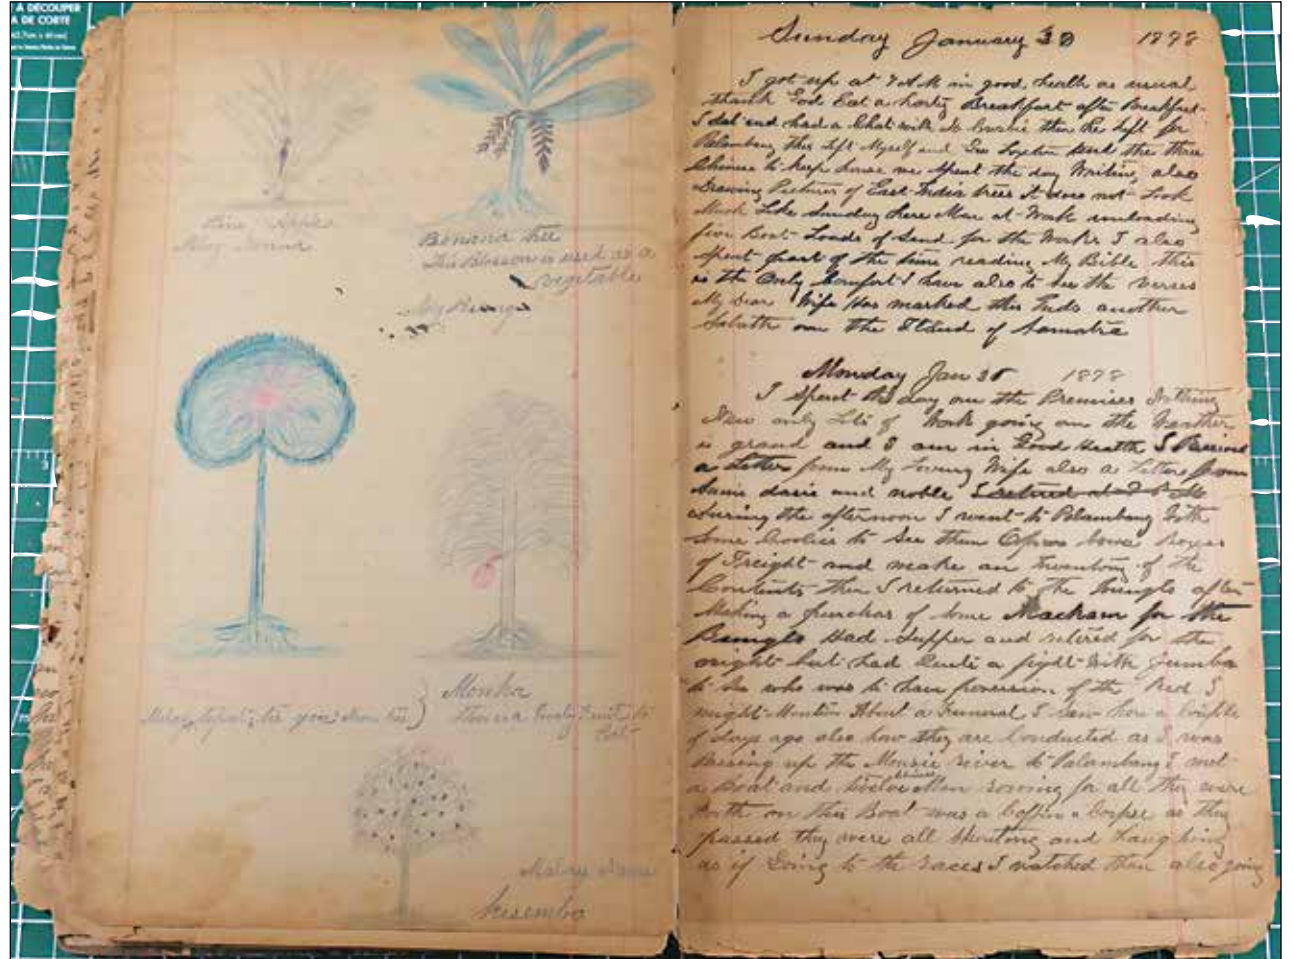 A DÉCOUPER
A DE CORTE
Pine Apple
Malay
Banana tree
This Blossom is used as a
vegetable
tree
This is a Lovely Fruit to
Eat
Malay Name
Sunday January 30 1898
I got up at 7 AM in good health as usual
thank God Eat a harty Breakfast after Breakfast
I sat and had a Chat with then he left for
Palambang this left Myself and the three
Chinese to keep house we spent the day Writing also
Drawing Pictures of East India trees it does not Look
Much Like Sunday here Men at Work unloading
five Boat Loads of Sand for the Works I also
spent part of the time reading My Bible this
is the Only Comfort I have also to see the verses
My Dear Wife Has marked this Ends another
Sabath on the Iland of Samatra
Monday Jan 31 1898
I spent the day on the Premises Nothing
New only Lots of Work going on the Weather
is grand and I am in Good Health I Received
a Letter from My Loving Wife also a Letter from
Annie and noble I retired at
during the afternoon I went to Palambang With
Some Coolies to See them Open Some Boxes
of Freight and make an Inventory of the
Contents then I returned to the after
Making a purchas of Some for the
Had Supper and retired for the
night but had Quite a fight With Jumbo
to See who was to have possession of the Bed I
might Mention About a Funeral I Saw here a Couple
of days ago also how they are Conducted as I was
Passing up the river to Palambang I met
a Boat and twelve Men rowing for all they were
Worth on this Boat was a Coffin & Corpse as they
passed they were all Shouting and
as if Going to the races I watched them also going